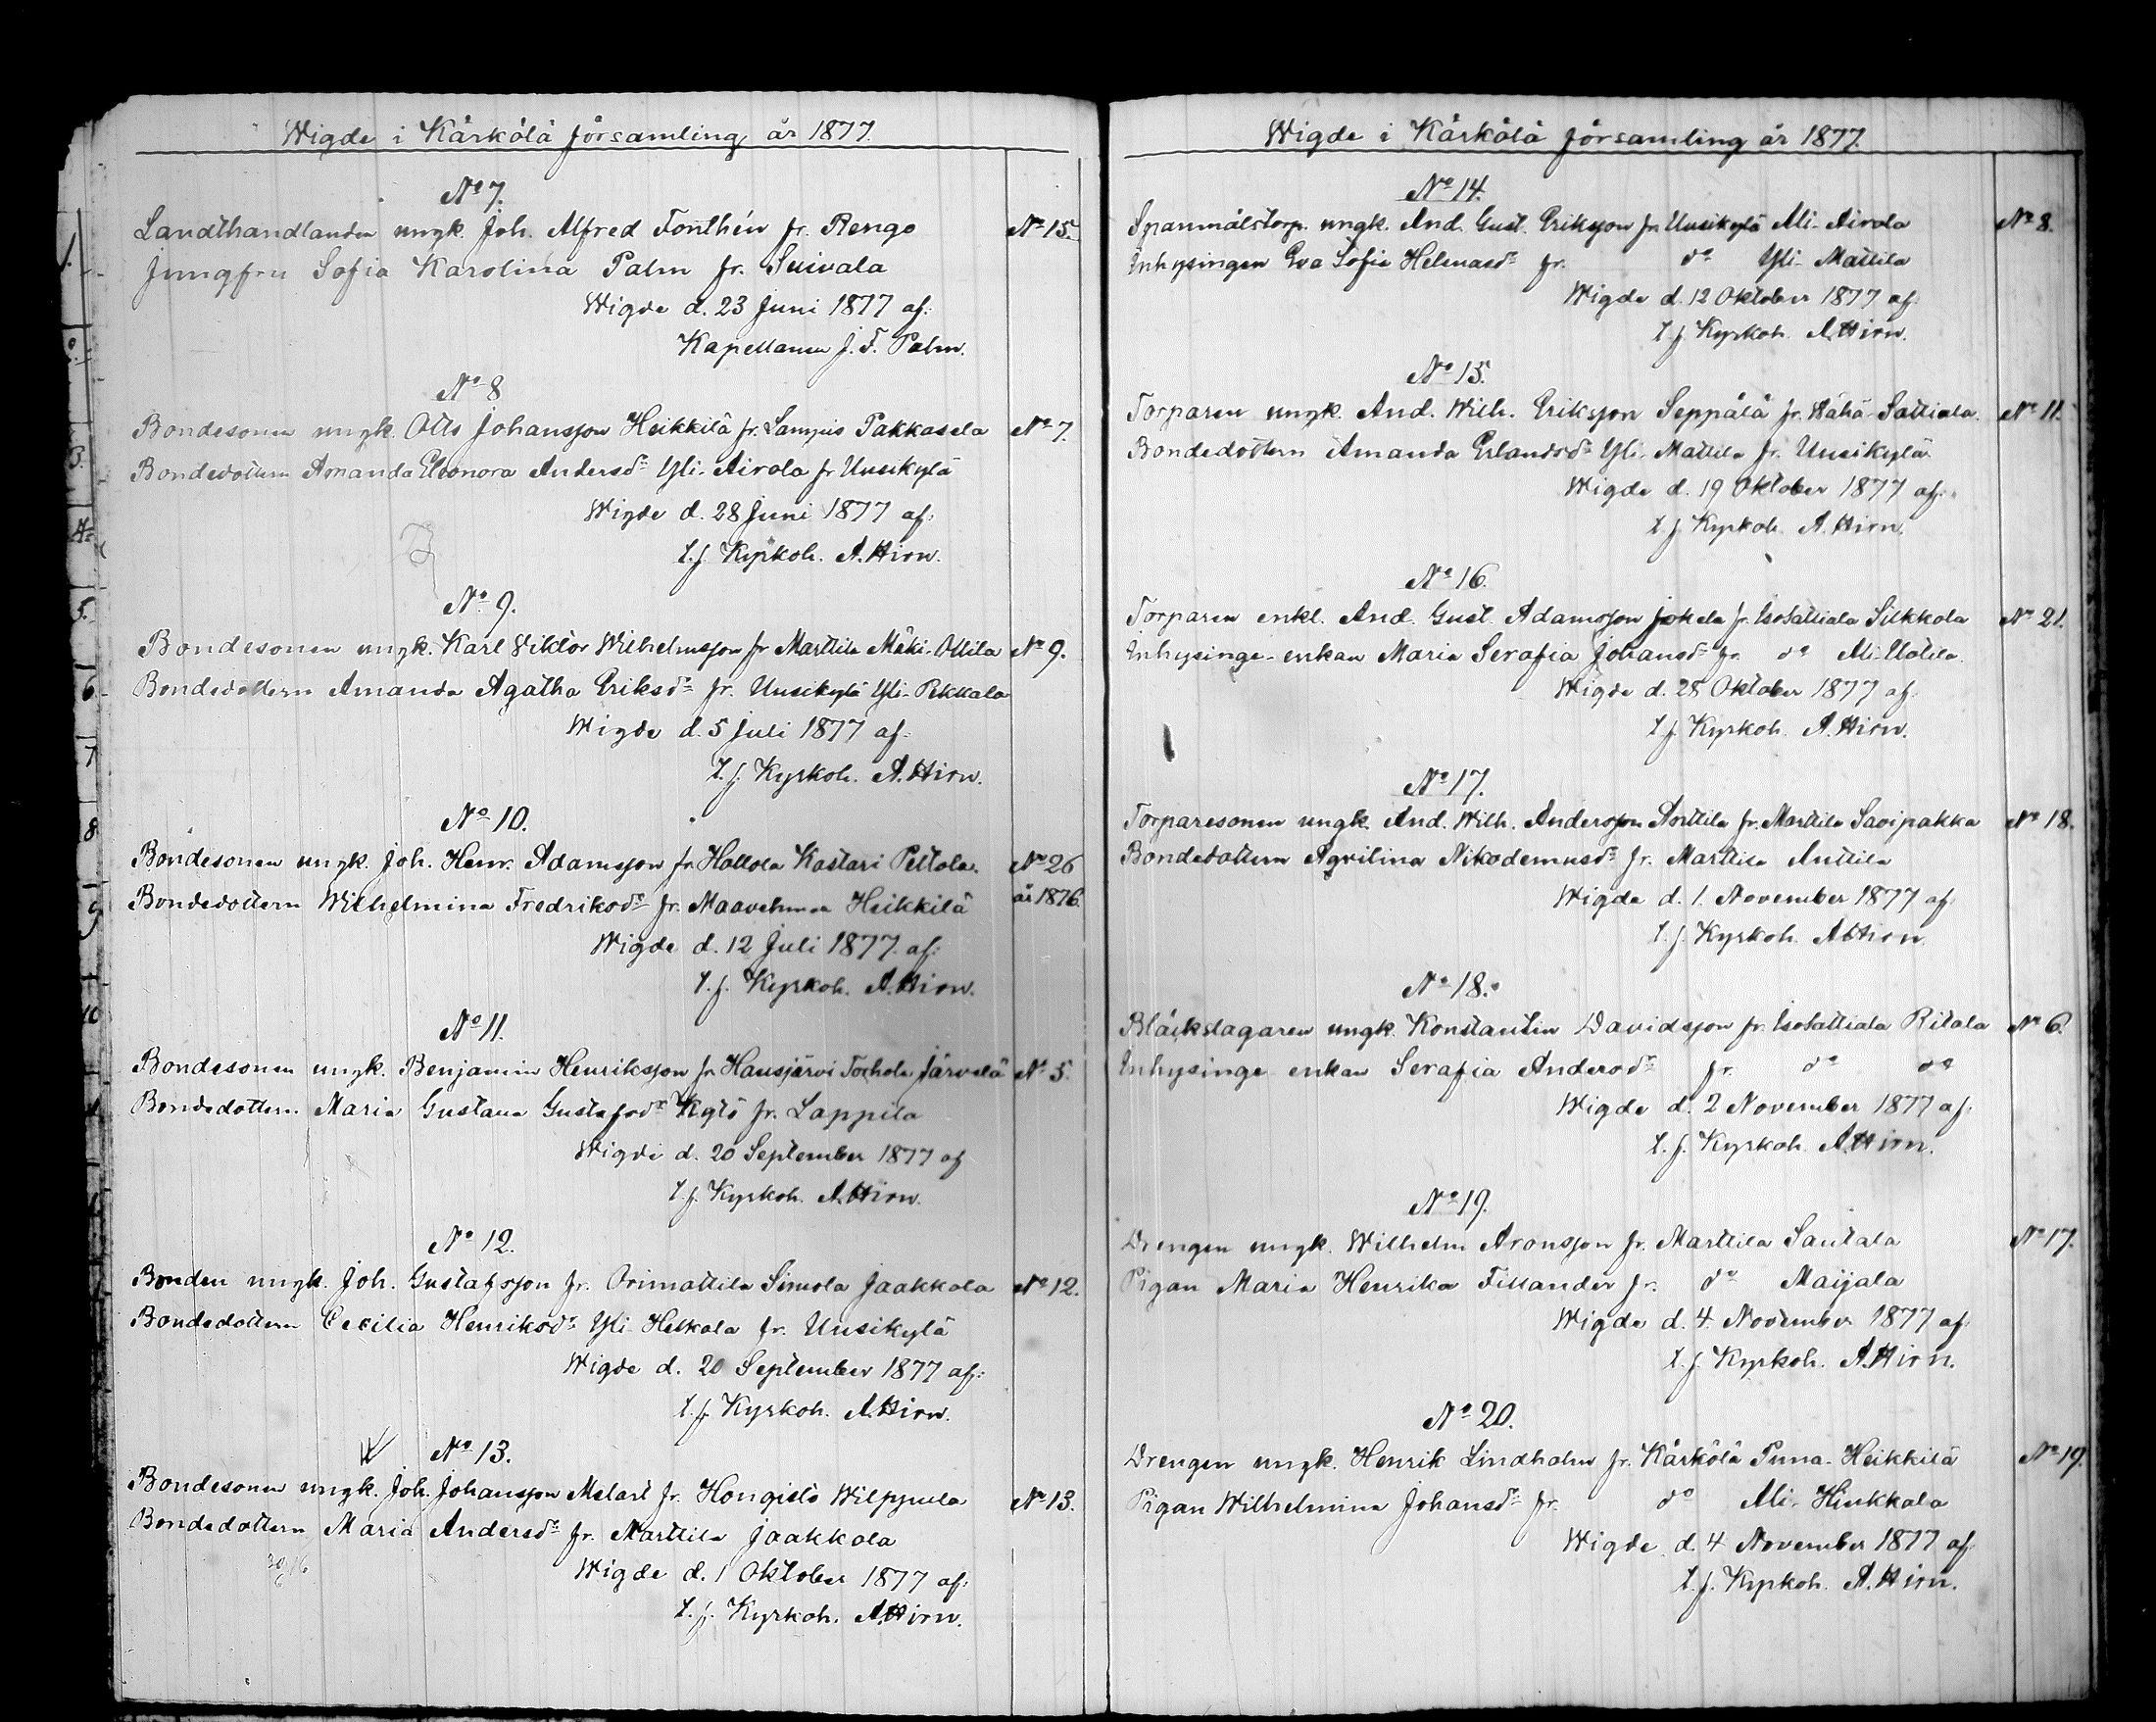 Wigde i Kärkölä församling år 1877.
No 7.
Landthandlanden ungk. Joh. Alfred Forthén fr. Rengo No 15.
Jungfru Sofia Karolina Palm fr. Suivala
Wigde d. 23 Juni 1877 af:
Kapellanen J. F. Palm.
No 8
Bondesonen ungk. Otto Johansson Heikkilä fr. Lampis Pakkasela No 7.
Bondedottern Amanda Eleonora Andersdr Yli-Airola fr Uusikylä
Wigde d. 28 Juni 1877 af:
t.f. Kyrkoh. A. Hirn.
No 9.
Bondesonen ungk. Karl Viktor Wilhelmsson fr Marttila Mäki-Ollila No 9.
Bondedottern Amanda Agatha Eriksdr fr. Uusikylä Yli-Pekkala
Wigde d. 5 Juli 1877 af:
t.f. Kyrkoh. A. Hirn.
No 10.
Bondesonen ungk. Joh. Henr. Adamsson fr. Hollola Kastari Peltola. No 26
Bondedottern Wilhelmina Fredriksdr fr. Maavehmaa Heikkilä år 1876.
Wigde d. 12 Juli 1877 af:
t.f. Kyrkoh. A. Hirn.
No 11.
Bondesonen ungk. Benjamin Henriksson fr Hausjärvi Torhola Järvelä No 5.
Bondedottern Maria Gustava Gustafsdr Kytö fr. Lappila
Wigde d. 20 September 1877 af
t.f. Kyrkoh. A. Hirn.
No 12.
Bonden ungk. Joh. Gustafsson fr. Orimattila Simola Jaakkola No 12.
Bondedottern Cecilia Henriksdr Yli Heikola fr. Uusikylä
Wigde d. 20 September 1877 af:
t.f. Kyrkoh. A. Hirn.
No 13.
Bondesonen ungk. Joh. Johansson Melart fr. Hongisto Wilppula No 13.
Bondedottern Maria Andersdr fr. Marttila Jaakkola
Wigde d. 1 Oktober 1877 af:
t.f. Kyrkoh. A. Hirn.
Wigde i Kärkölä församling år 1877.
No 14.
Spanmålstorp. ungk. And. Gust. Eriksson fr Uusikylä Ali-Airola No 8.
Inhysingen Eva Sofia Helenasdr fr. do Yli-Mattila
Wigde d. 12 Oktober 1877 af:
t.f. Kyrkoh. A. Hirn.
No 15.
Torparen ungk. And. Wilh. Eriksson Seppälä fr. Wähä-Sattiala. No 11.
Bondedottern Amanda Erlandsdr Yli-Mattila fr. Uusikylä
Wigde d. 19 Oktober 1877 af:
t.f. Kyrkoh. A. Hirn.
No 16.
Torparen enkl. And. Gust. Adamsson Jokela fr. IsoSattiala Silkkola No 21.
Inhysinge-enkan Maria Serafia Johansdr fr. do Ali-Uotila
Wigde d. 28 Oktober 1877 af
t.f. Kyrkoh. A. Hirn.
No 17.
Torparesonen ungk. And. Wilh. Andersson Anttila fr. Marttila Savipakka No 18.
Bondedottern Agvilina Nikodemusdr fr. Marttila Anttila
Wigde d. 1. November 1877 af
t.f. Kyrkoh. A. Hirn
No 18.
Bläckslagaren ungk. Konstantin Davidsson fr. IsoSattiala Ritala No 6.
Inhysinge enkan Serafia Andersdr fr. do do
Wigde d. 2 November 1877 af:
t.f. Kyrkoh. A. Hirn.
No 19.
Drengen ungk. Wilhelm Aronsson fr. Marttila Santala No 17.
Pigan Maria Henrika Fillander fr. do Maijala
Wigde d. 4. November 1877 af:
t.f. Kyrkoh. A. Hirn.
No 20.
Drengen ungk. Henrik Lindholm fr. Kärkölä Puna-Heikkilä No 19.
Pigan Wilhelmina Johansdr fr. do Ali-Hinkkala
Wigde d. 4 November 1877 af
t.f. Kyrkoh. A. Hirn.